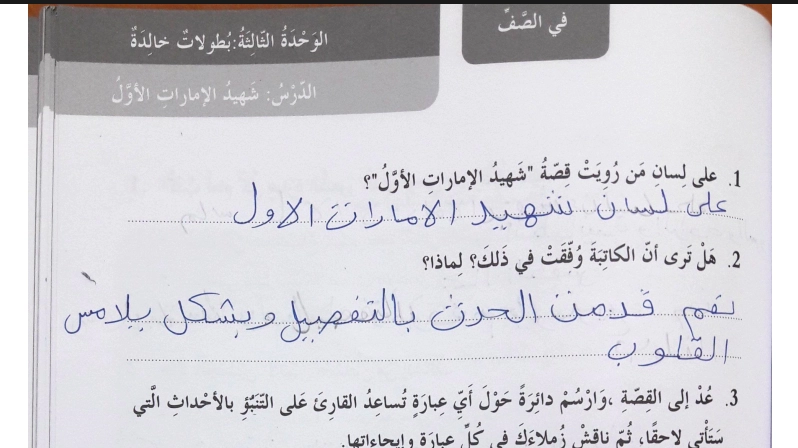 في الصَّفِّ
الوَحْدَةُ الثّالِثَةُ:بُطولاتٌ خالِدَةٌ
الدَّرْسُ: شَهيدُ الإماراتِ الأوَّلُ
1. على لِسان مَن رُوِيَتْ قِصّةُ "شَهيدُ الإماراتِ الأوَّلُ"؟
على لسان شهيد الامارات الاول
2. هَلْ تَرى أنّ الكاتِبَةَ وُفِّقَتْ في ذَلكَ؟ لِماذا؟
نعم قدمت الحدث بالتفصيل وبشكل يلامس
القلوب
3. عُدْ إلى القِصّةِ ،وَارْسُمْ دائِرَةً حَوْلَ أَيّ عِبارَةٍ تُساعدُ القارِئَ عَلى التَّنَبُّؤِ بالأحْداثِ الَّتي
سَتَأتي لاحقًا، ثُمّ ناقِشْ زُملاءَكَ في كُلِّ عبارة وإيحاءاتها.